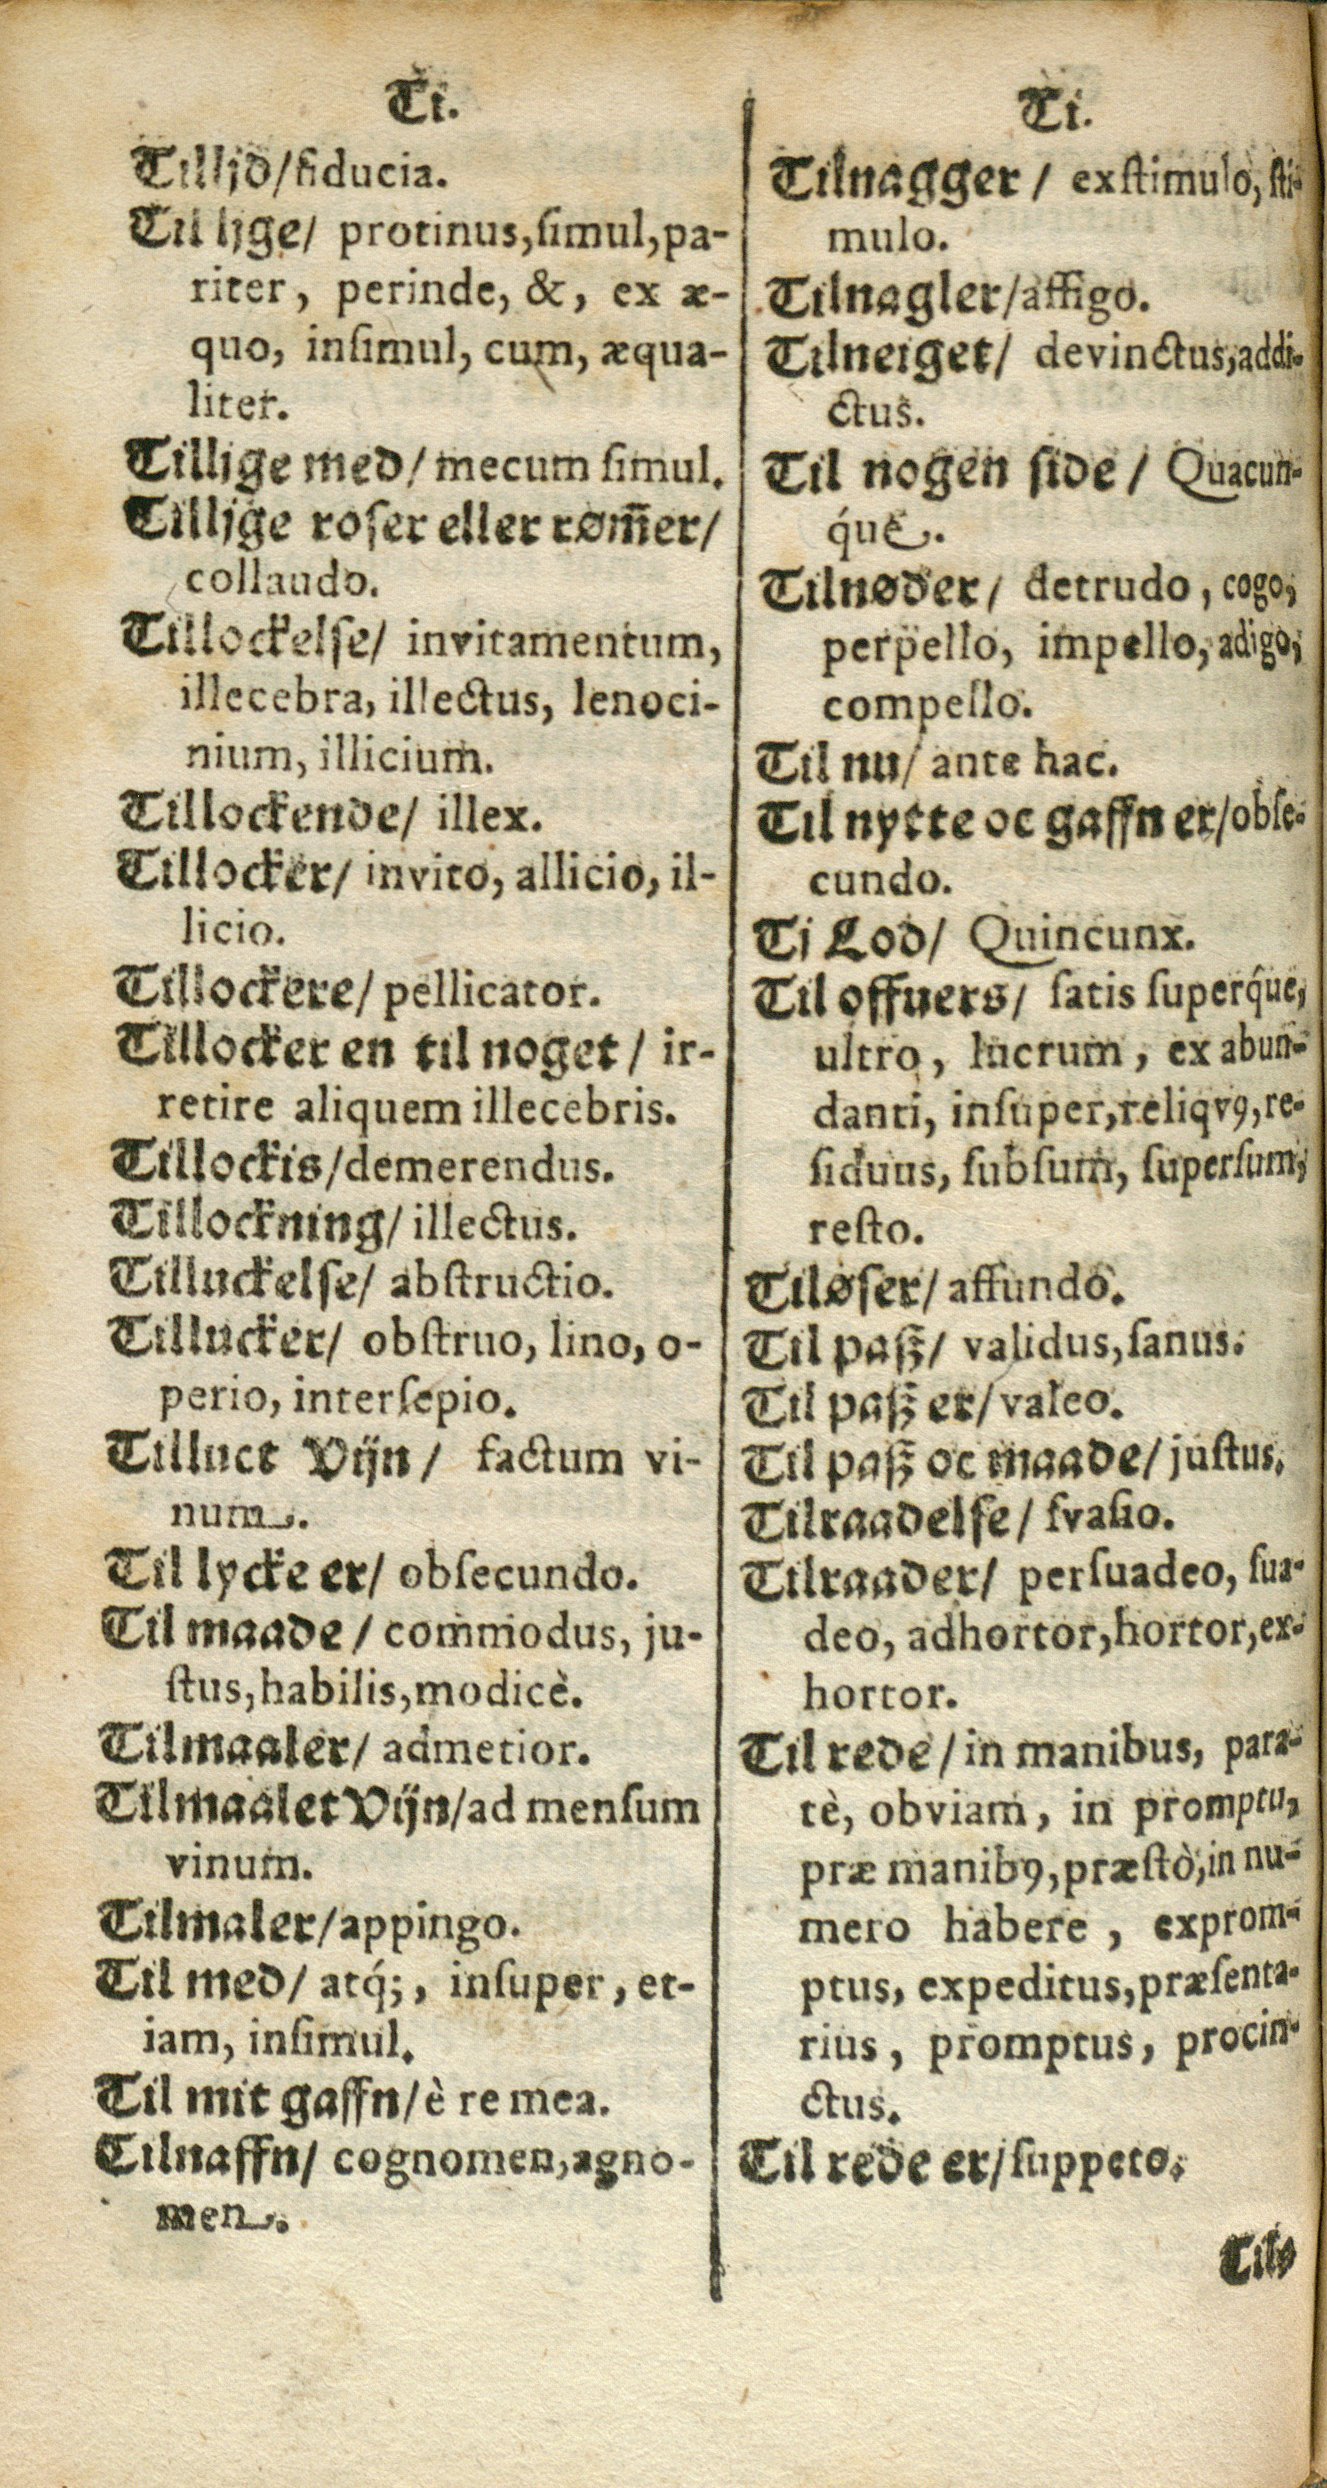 Ti.
Tillid/fiducia.
Til lige/ protinus,ſimul,pa-
riter, perinde, &, ex æ-
quo, inſimul, cum, æqua-
liter.
Tillige med/ mecum ſimul.
Tillige roſer eller røm̃er/
collaudo.
Tillockelſe/ invitamentum,
illecebra, illectus, lenoci-
nium, illicium.
Tillockende/ illex.
Tillocker/ invito, allicio, il-
licio.
Tillockere/ pellicator.
Tillocker en til noget/ ir-
retire aliquem illecebris.
Tillockis/demerendus.
Tillockning/ illectus.
Tilluckelſe/ abſtructio.
Tillucker/ obſtruo, lino, o-
perio, interſepio.
Tilluct Vijn/ factum vi-
num.
Til lycke er/ obſecundo.
Til maade/ commodus, ju-
ſtus,habilis,modicè.
Tilmaaler/ admetior.
Tilmaalet Vijn/ad menſum
vinum.
Tilmaler/appingo.
Til med/ atq́;, inſuper, et-
iam, inſimul.
Til mit gaffn/è re mea.
Tilnaffn/ cognomen,agno-
men.
Ti.
Tilnagger/ exſtimulo, ſti-
mulo.
Tilnagler/affigo.
Tilneiget/ devinctus,addi-
ctus.
Til nogen ſide/ Quacun-
q́ue.
Tilnøder/ detrudo, cogo,
perpello, impello, adigo,
compello.
Til nu/ ante hac.
Til nytte oc gaffn er/obſe-
cundo.
Ti Lod/ Quincunx.
Til offuers/ ſatis ſuperq́ue,
ultro, lucrum, ex abun-
danti, inſuper,reliqvꝯ,re-
ſiduus, ſubſum, ſuperſum,
reſto.
Tiløſer/ affundo.
Til paſz/ validus,ſanus.
Til paſz er/valeo.
Til paſz oc maade/ juſtus.
Tilraadelſe/ ſvaſio.
Tilraader/ perſuadeo, ſua-
deo, adhortor,hortor,ex-
hortor.
Til rede/in manibus, para-
tè, obviam, in promptu,
præ manibꝯ,præſtò,in nu-
mero habere, exprom-
ptus, expeditus,præſenta-
rius, promptus, procin-
ctus.
Til rede er/ſuppeto.